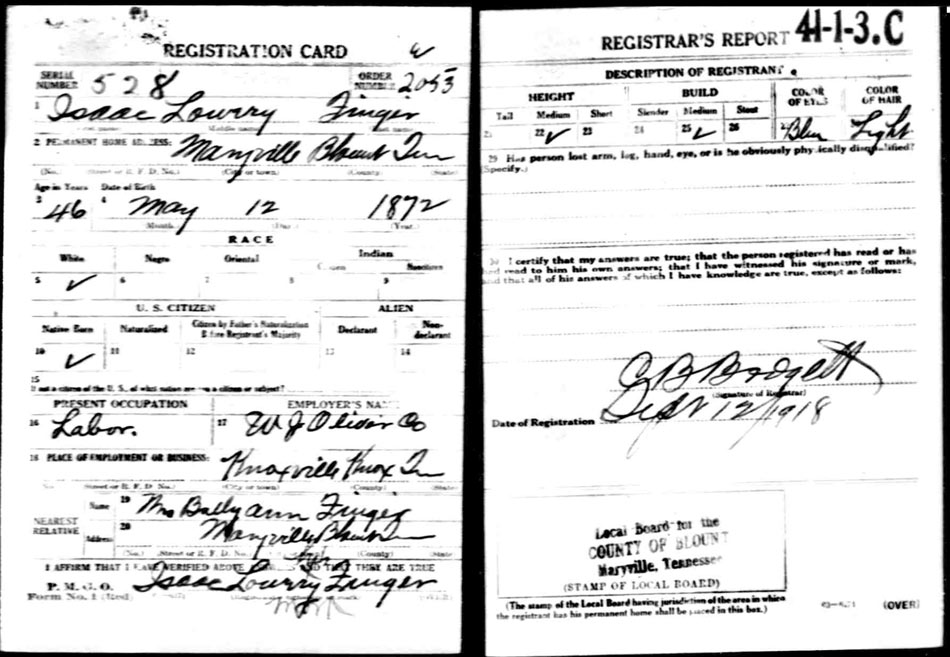 REGISTRATION CARD
SERIAL NUMBER 528 ORDER NUMBER 2053
1 Isaac Lowry Finger
Middle name
2 PERMANENT HOME ADDRESS: Maryville Blount Tenn
(No.) (Street or R. F. D. No.) (City or town) (County) (State)
Age in Years Date of Birth
3 46 4 May 12 1872
(Month.) (Day.) (Year.)
RACE
White Negro Oriental Indian
Citizen Noncitizen
5 ✓ 6 7 8 9
U. S. CITIZEN ALIEN
Native Born Naturalized Citizen by Father's Naturalization Before Registrant's Majority Declarant Non-declarant
10 ✓ 11 12 13 14
15
If not a citizen of the U. S., of what nation are you a citizen or subject?
PRESENT OCCUPATION EMPLOYER'S NAME
16 Labor. 17 W J Oliver Co
18 PLACE OF EMPLOYMENT OR BUSINESS: Knoxville Knox Tenn
(No.) (Street or R. F. D. No.) (City or town) (County) (State)
NEAREST RELATIVE
Name 19 Mrs Ann Finger
Address 20 Maryville Blount Tenn
(No.) (Street or R. F. D. No.) (City or town) (County) (State)
I AFFIRM THAT I HAVE VERIFIED ABOVE THAT THEY ARE TRUE
P. M. G. O.
Form No. 1 (Red) Isaac Lowry Finger
mark
REGISTRAR'S REPORT 41-1-3.C
DESCRIPTION OF REGISTRANT
HEIGHT BUILD COLOR OF EYES COLOR OF HAIR
Tall Medium Short Slender Medium Stout
21 22 ✓ 23 24 25 ✓ 26 27 Blue 28 Light
29 Has person lost arm, leg, hand, eye, or is he obviously physically disqualified?
(Specify.)
30 I certify that my answers are true; that the person registered has read or has
had read to him his own answers; that I have witnessed his signature or mark,
and that all of his answers of which I have knowledge are true, except as follows:
(Signature of Registrar)
Date of Registration Sept 12/1918
Local Board for the
COUNTY OF BLOUNT
Maryville, Tennessee
(STAMP OF LOCAL BOARD)
(The stamp of the Local Board having jurisdiction of the area in which
the registrant has his permanent home shall be placed in this box.)
(OVER)